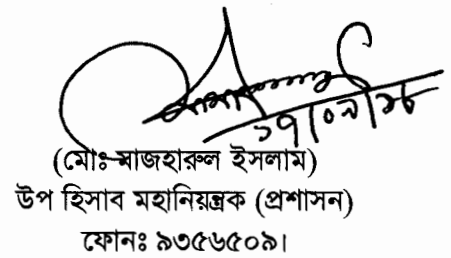 ১৭|০৭|১৮
(মোঃ মাজহারুল ইসলাম)
উপ হিসাব মহানিয়ন্ত্রক (প্রশাসন)
ফোনঃ ৯৩৫৬৫০৯।